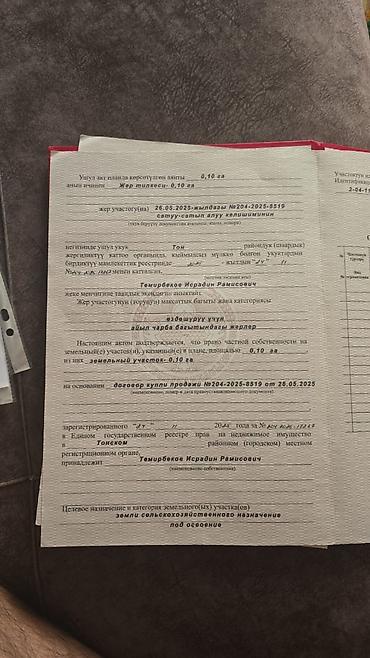 Ушул акт планда көрсөтүлгөн аянты 0,10 га
анын ичинен Жер тилкеси- 0,10 га
жер участогу(на) 26.05.2025-жылдагы №204-2025-8519
сатуу-сатып алуу келишиминин
негизинде ушул укук Тон райондук (шаардык)
жергиликтүү каттоо органында, кыймылсыз мүлккө болгон укуктардын
бирдиктүү мамлекеттик реестринде жылдын "27" 11
менен катталган,
Темирбеков Исрадин Рамисович
жеке менчигине таандык экендигин ырастайт.
Жер участогунун (торунун) максаттык багыты жана категориясы
өздөшүрүү үчүн
айыл чарба багытындагы жерлер
Настоящим актом подтверждается, что право частной собственности на
земельный(е) участок(и), указанный(е) в плане, площадью 0,10 га
из них земельный участок- 0,10 га
на основании договор купли продажи №204-2025-8519 от 26.05.2025
(наименование, номер и дата правоустанавливающего документа)
зарегистрированного "27" 11 2025 года за №
в Едином государственном реестре прав на недвижимое имущество
в Тонском районном (городском) местном
регистрационном органе,
принадлежит Темирбеков Исрадин Рамисович
(наименование собственника)
Целевое назначение и категория земельного(ых) участка(ов)
земли сельскохозяйственного назначение
под освоение
Участоктун
Идентифика
2-04-11